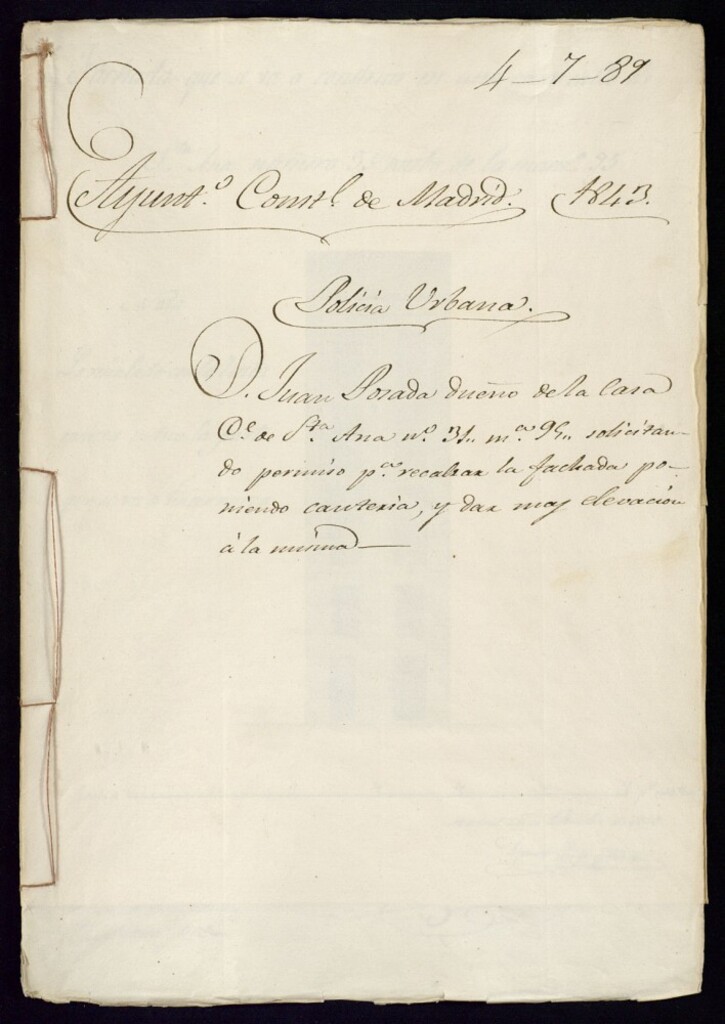 4-7-89
Ayunt.º Const.l de Madrid. 1843.
Policia Urbana.
D. Juan Posada dueño de la Casa
C.e de S.ta Ana nº. 31,, m.a 95,, solicitan-
do permiso p.a recalzar la fachada po-
niendo canteria, y dar mas elevacion
á la misma—